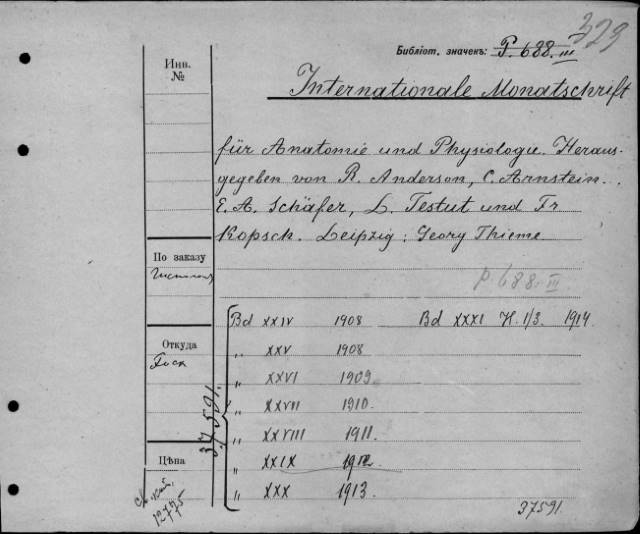 329
Библіот. значекъ: P. 688. III
Инв.
№
Internationale Monatschrift
für Anatomie und Physiologie. Heraus-
gegeben von R. Anderson, C. Arnstein.
E. A. Schäfer, L. Testut und Fr
Kopsch. Leipzig: Georg Thieme
По заказу
P. 688. III
Bd XXIV 1908 Bd XXXI H. 1/3. 1914.
Откуда
„ XXV 1908
„ XXVI 1909.
„ XXVII 1910.
„ XXVIII 1911.
37591.
Цѣна
„ XXIX 1912.
„ XXX 1913.
12775
37591.